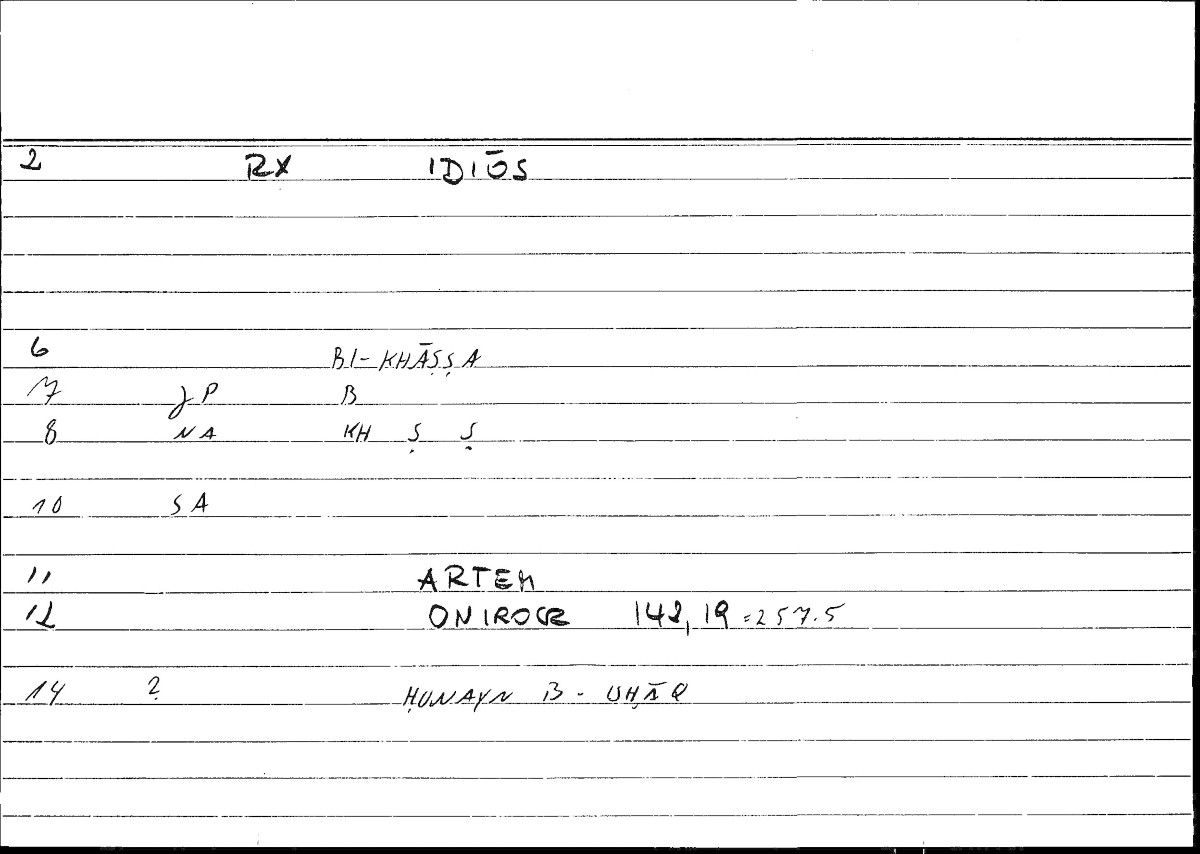 2 RX IDIŌS
6 BI-KHĀṢṢA
7 JP B
8 NA KH Ṣ Ṣ
10 SA
11 ARTEM
12 ONIROCR 142,19 =257.5
14 2 ḤUNAYN B-